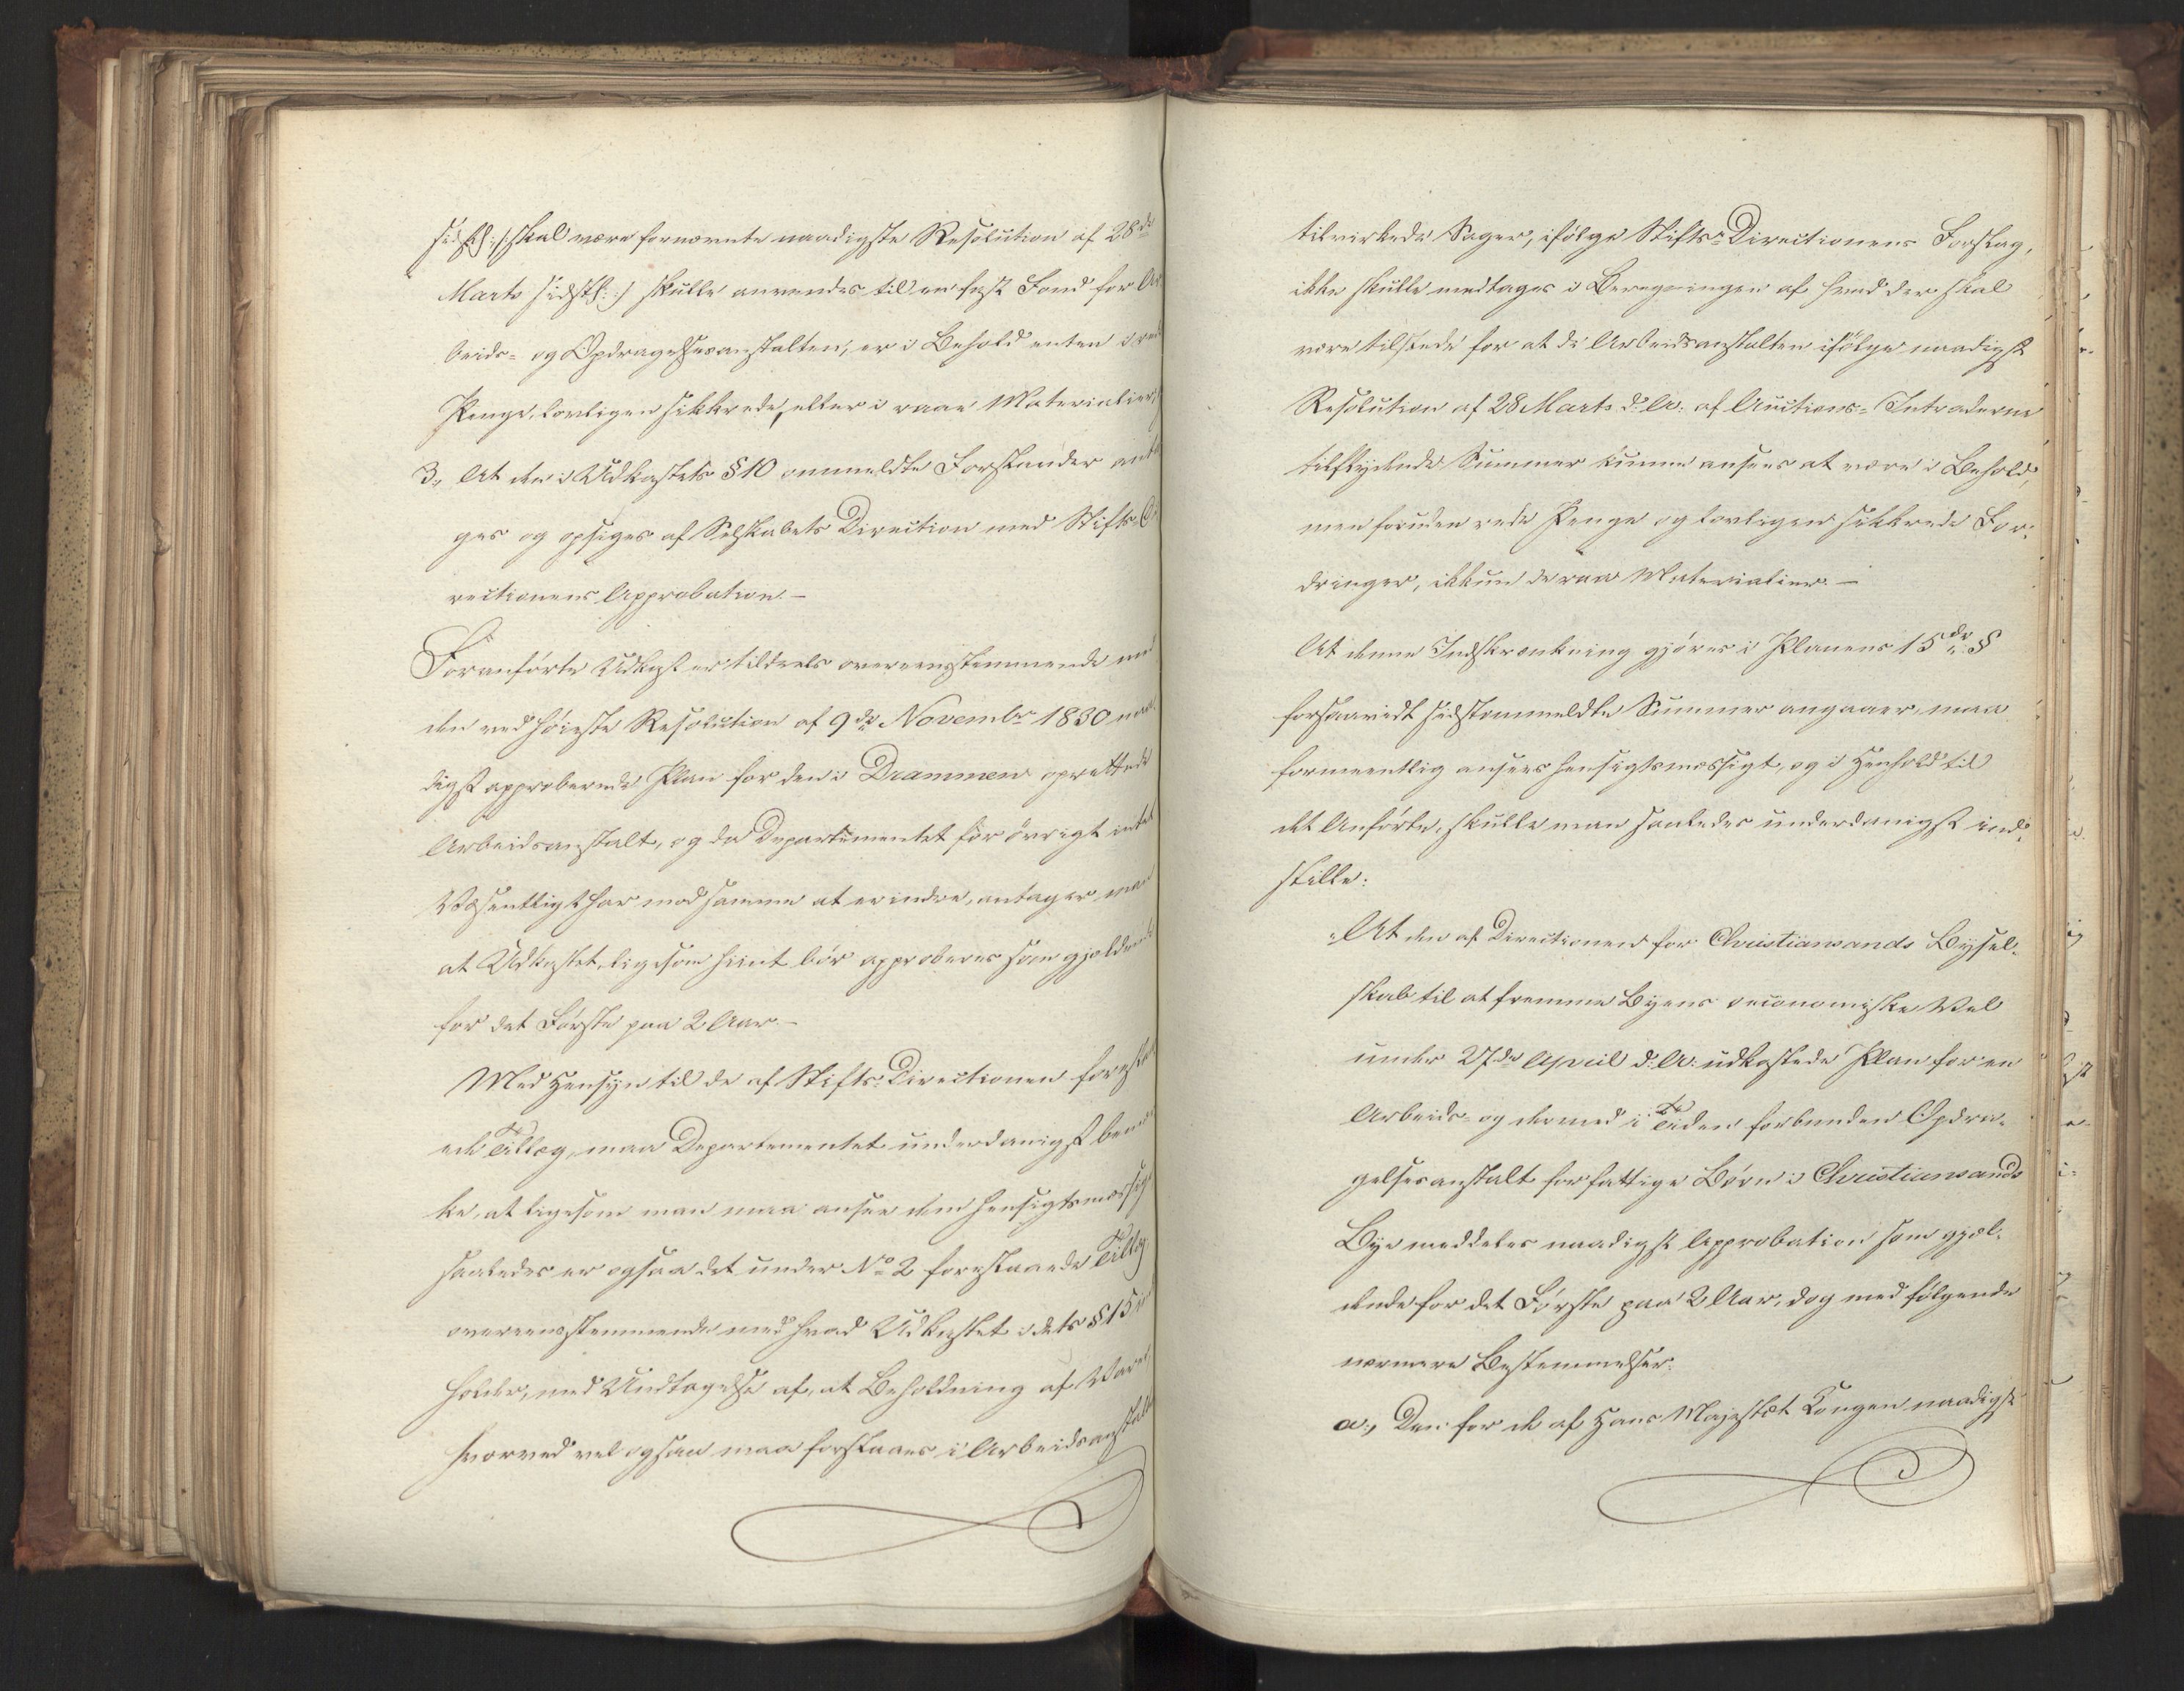 sidstl: /: skal være fornævnte naadigste Resolution af 28de
Marts sidstl: :/ skulle anvendes til en fast Fond for Ar
beids- og Opdragelsesanstalten, er i Behold enten i rede
Penge, lovligen sikkrede, eller i raae Materialier,
3, At den i Udkastets § 10 ommeldte Forstander anta
ges og opsiges af Selskabets Direction med Stifts-Di
rectionens Approbation. –
Foranførte Udkast er tildeels overeensstemmende med
den ved høieste Resolution af 9de Novembr 1830 naa
digst approberede Plan for den i Drammen oprettede
Arbeidsanstalt, og da Departementet for øvrigt intet
Væsentligt har mod samme at erindre, antager man
at Udkastet, ligesom hiint bør approberes som gjeldende
for det Første paa 2 Aar. –
Med Hensyn til de af Stifts-Directionen foreslaa
ede Tillæg, maa Departementet underdanigst bemær
ke, at ligesom man maa ansee dem hensigtsmæssige
saaledes er ogsaa det under No 2 foreslaaede Tillæg
overeensstemmende med hvad Udkastet i dets § 15 inde
holder, med Undtagelse af, at Beholdning af Varer,
hvorved vel ogsaa maa forstaaes i Arbeidsanstalten
tilvirkede Sager, ifølge Stifts-Directionens Forslag,
ikke skulle medtages i Beregningen af hvad der skal
være tilstede for at de Arbeidsanstalten ifølge naadigst
Resolution af 28 Marts d: A: af Auctions-Intraderne
tilflydende Summer kunne ansees at være i Behold,
men foruden rede Penge og lovligen sikkrede For-
dringer, ikkun de raa Materialier. –
At denne Indskrænkning gjøres i Planens 15de §
forsaavidt sidstommeldte Summer angaaer, maa
formeentlig ansees hensigtsmæssigt, og i Henhold til
det Anførte, skulle man saaledes underdanigst ind-
stille:
"At den af Directionen for Christiansands Byesel-
skab til at fremme Byens oeconomiske Vel
under 27de April d: A: udkastede Plan for en
Arbeids- og dermed i Tiden forbunden Opdra-
gelsesanstalt for fattige Børn i Christiansands
Bye meddeles naadigst Approbation som gjel-
dende for det Første paa 2 Aar, dog med følgende
nærmere Bestemmelser:
a:, Den for de af Hans Majestæt Kongen naadigst